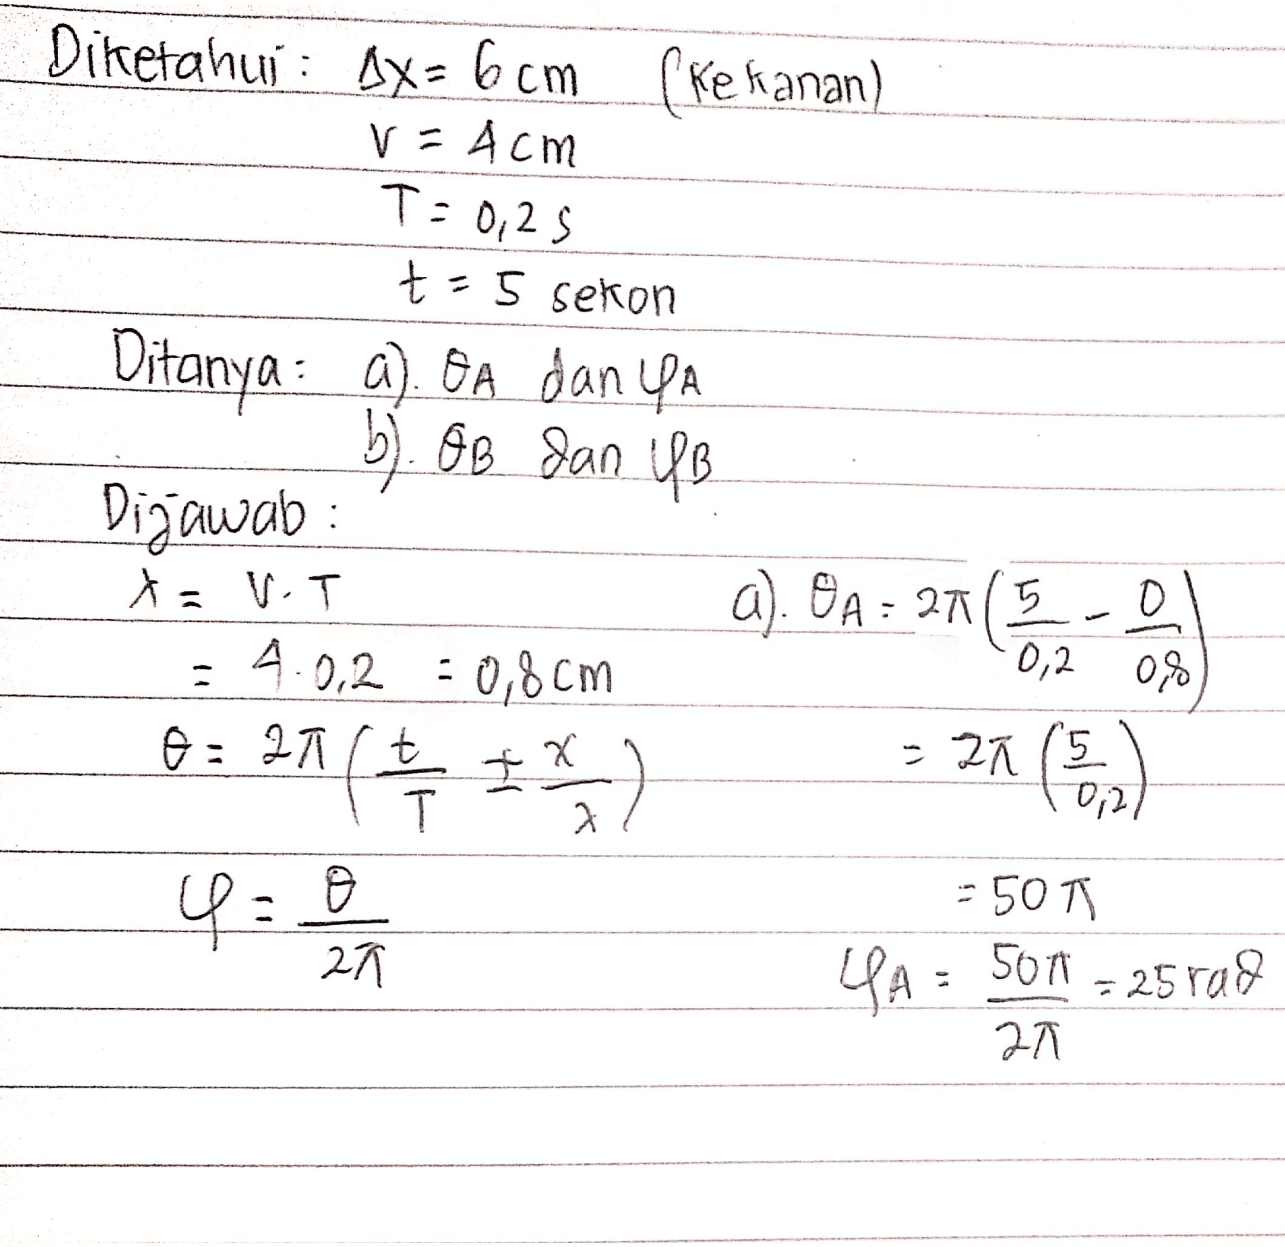 Diketahui : Δx = 6 cm (ke kanan)
v = 4 cm
T = 0,2 s
t = 5 sekon
Ditanya : a). θA dan φA
b). θB dan φB
Dijawab :
λ = v . T
= 4 . 0,2 = 0,8 cm
θ = 2π (t/T ± x/λ)
φ = θ/2π
a). θA = 2π (5/0,2 - 0/0,8)
= 2π (5/0,2)
= 50 π
φA = 50π/2π = 25 rad